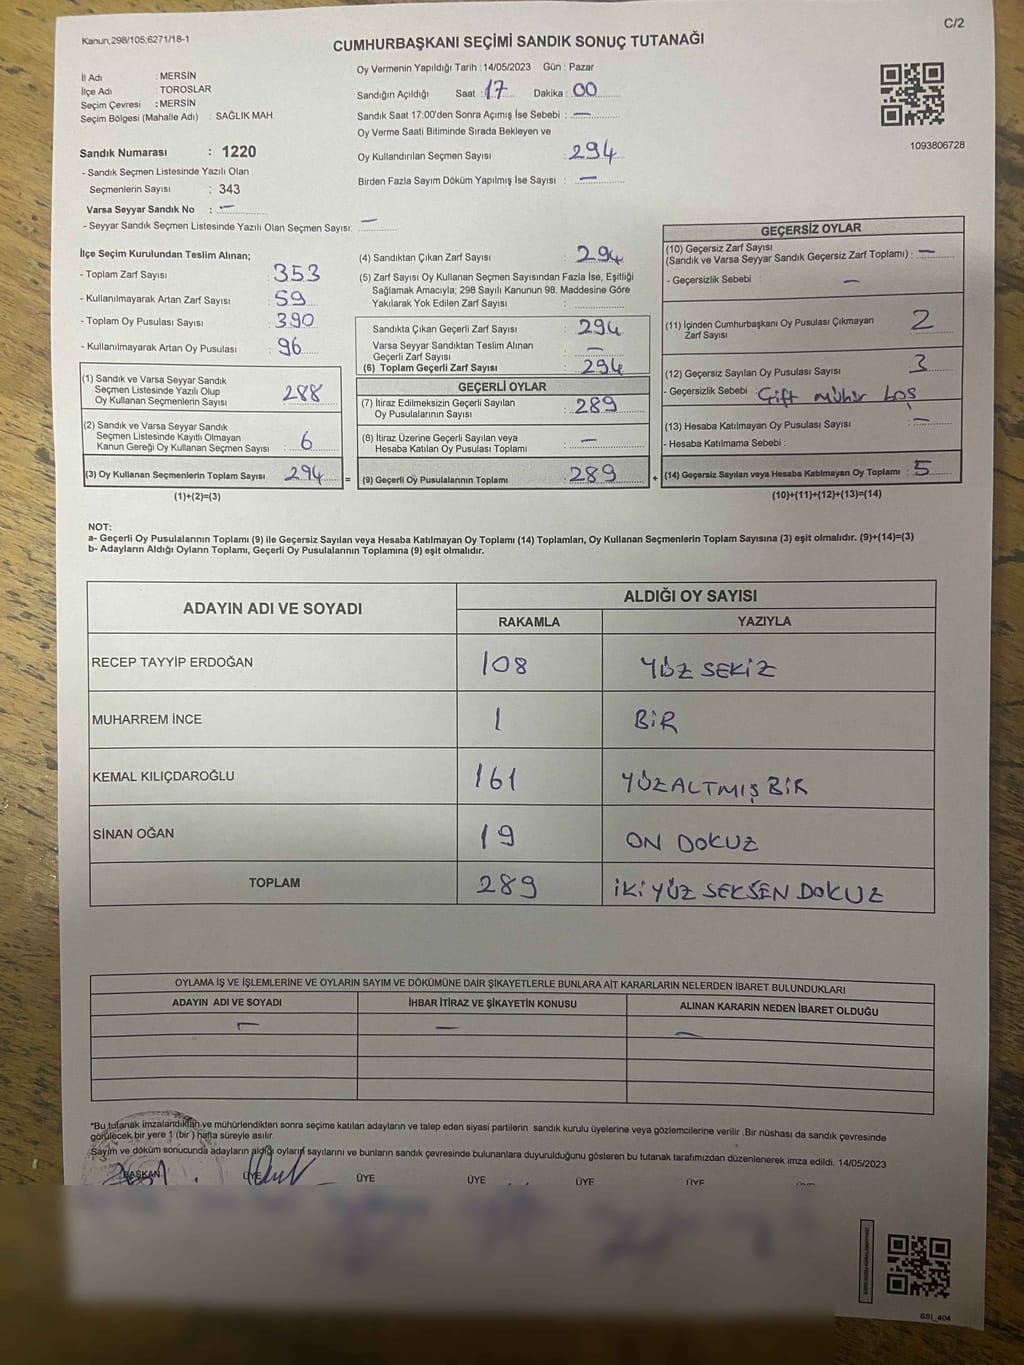 Kanun;298/105;6271/18-1
C/2
CUMHURBAŞKANI SEÇİMİ SANDIK SONUÇ TUTANAĞI
İl Adı : MERSİN
İlçe Adı : TOROSLAR
Seçim Çevresi : MERSİN
Seçim Bölgesi (Mahalle Adı) : SAĞLIK MAH.
Sandık Numarası : 1220
- Sandık Seçmen Listesinde Yazılı Olan
Seçmenlerin Sayısı : 343
Varsa Seyyar Sandık No : —
- Seyyar Sandık Seçmen Listesinde Yazılı Olan Seçmen Sayısı: —
Oy Vermenin Yapıldığı Tarih : 14/05/2023 Gün : Pazar
Sandığın Açıldığı Saat : 17 Dakika : 00
Sandık Saat 17:00'den Sonra Açımış İse Sebebi : —
Oy Verme Saati Bitiminde Sırada Bekleyen ve
Oy Kullandırılan Seçmen Sayısı : 294
Birden Fazla Sayım Döküm Yapılmış İse Sayısı : —
1093806728
İlçe Seçim Kurulundan Teslim Alınan;
- Toplam Zarf Sayısı : 353
- Kullanılmayarak Artan Zarf Sayısı : 59
- Toplam Oy Pusulası Sayısı : 390
- Kullanılmayarak Artan Oy Pusulası : 96
(1) Sandık ve Varsa Seyyar Sandık
Seçmen Listesinde Yazılı Olup
Oy Kullanan Seçmenlerin Sayısı : 288
(2) Sandık ve Varsa Seyyar Sandık
Seçmen Listesinde Kayıtlı Olmayan
Kanun Gereği Oy Kullanan Seçmen Sayısı : 6
(3) Oy Kullanan Seçmenlerin Toplam Sayısı : 294 =
(1)+(2)=(3)
(4) Sandıktan Çıkan Zarf Sayısı : 294
(5) Zarf Sayısı Oy Kullanan Seçmen Sayısından Fazla İse, Eşitliği
Sağlamak Amacıyla; 298 Sayılı Kanunun 98. Maddesine Göre
Yakılarak Yok Edilen Zarf Sayısı :
Sandıkta Çıkan Geçerli Zarf Sayısı : 294
Varsa Seyyar Sandıktan Teslim Alınan
Geçerli Zarf Sayısı : —
(6) Toplam Geçerli Zarf Sayısı : 294
GEÇERLİ OYLAR
(7) İtiraz Edilmeksizin Geçerli Sayılan
Oy Pusulalarının Sayısı : 289
(8) İtiraz Üzerine Geçerli Sayılan veya
Hesaba Katılan Oy Pusulası Toplamı : —
(9) Geçerli Oy Pusulalarının Toplamı : 289 +
GEÇERSİZ OYLAR
(10) Geçersiz Zarf Sayısı
(Sandık ve Varsa Seyyar Sandık Geçersiz Zarf Toplamı) : —
- Geçersizlik Sebebi : —
(11) İçinden Cumhurbaşkanı Oy Pusulası Çıkmayan
Zarf Sayısı : 2
(12) Geçersiz Sayılan Oy Pusulası Sayısı : 3
- Geçersizlik Sebebi : Çift mühür boş
(13) Hesaba Katılmayan Oy Pusulası Sayısı : —
- Hesaba Katılmama Sebebi :
(14) Geçersiz Sayılan veya Hesaba Katılmayan Oy Toplamı : 5
(10)+(11)+(12)+(13)=(14)
NOT:
a- Geçerli Oy Pusulalarının Toplamı (9) ile Geçersiz Sayılan veya Hesaba Katılmayan Oy Toplamı (14) Toplamları, Oy Kullanan Seçmenlerin Toplam Sayısına (3) eşit olmalıdır. (9)+(14)=(3)
b- Adayların Aldığı Oyların Toplamı, Geçerli Oy Pusulalarının Toplamına (9) eşit olmalıdır.
ADAYIN ADI VE SOYADI
ALDIĞI OY SAYISI
RAKAMLA YAZIYLA
RECEP TAYYİP ERDOĞAN 108 YÜZ SEKİZ
MUHARREM İNCE 1 BİR
KEMAL KILIÇDAROĞLU 161 YÜZALTMIŞ BİR
SİNAN OĞAN 19 ON DOKUZ
TOPLAM 289 İKİ YÜZ SEKSEN DOKUZ
OYLAMA İŞ VE İŞLEMLERİNE VE OYLARIN SAYIM VE DÖKÜMÜNE DAİR ŞİKAYETLERLE BUNLARA AİT KARARLARIN NELERDEN İBARET BULUNDUKLARI
ADAYIN ADI VE SOYADI İHBAR İTİRAZ VE ŞİKAYETİN KONUSU ALINAN KARARIN NEDEN İBARET OLDUĞU
— — —
*Bu tutanak imzalandıktan ve mühürlendikten sonra seçime katılan adayların ve talep eden siyasi partilerin sandık kurulu üyelerine veya gözlemcilerine verilir .Bir nüshası da sandık çevresinde
görülecek bir yere 1 (bir ) hafta süreyle asılır.
Sayım ve döküm sonucunda adayların aldığı oyların sayılarını ve bunların sandık çevresinde bulunanlara duyurulduğunu gösteren bu tutanak tarafımızdan düzenlenerek imza edildi. 14/05/2023
BAŞKAN ÜYE ÜYE ÜYE ÜYE ÜYE
SSI_404